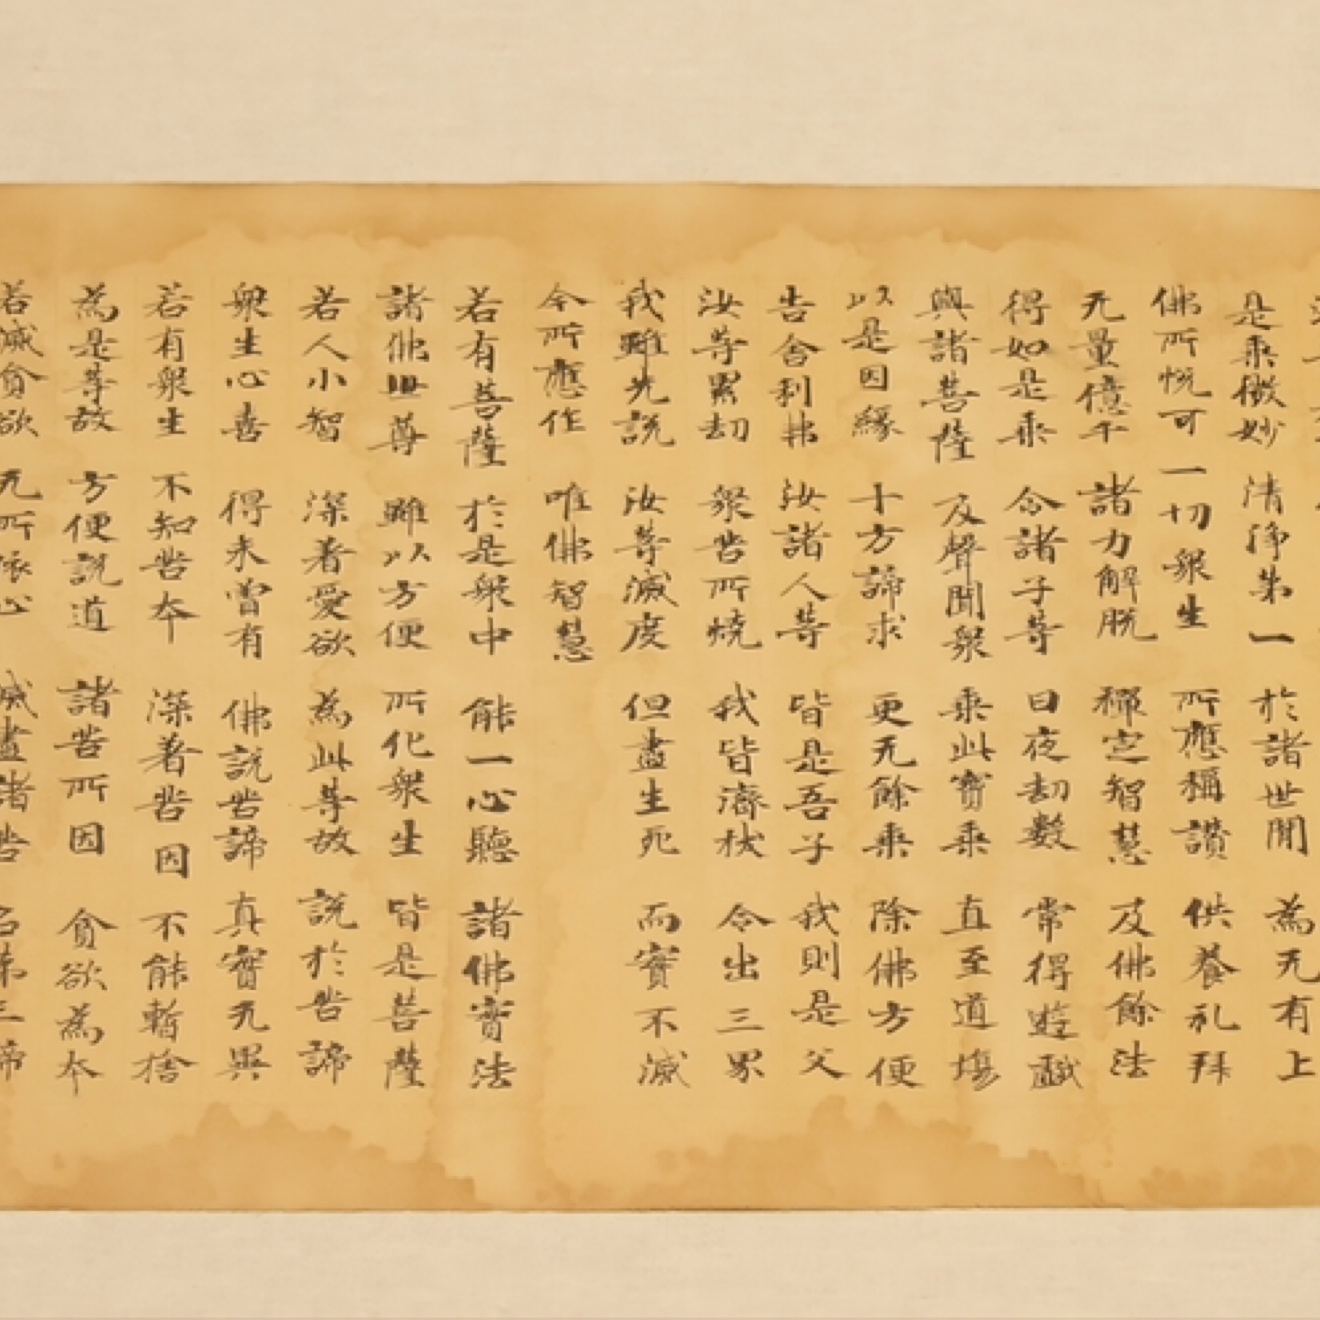 是乘微妙 清淨第一 於諸世間 為无有上
佛所悅可 一切衆生 所應稱讚 供養礼拜
无量億千 諸力解脫 禪定智慧 及佛餘法
得如是乘 令諸子等 日夜劫數 常得遊戲
與諸菩薩 及聲聞衆 乘此寶乘 直至道場
以是因緣 十方諦求 更无餘乘 除佛方便
告舍利弗 汝諸人等 皆是吾子 我則是父
汝等累劫 衆苦所燒 我皆濟拔 令出三界
我雖先說 汝等滅度 但盡生死 而實不滅
今所應作 唯佛智慧
若有菩薩 於是衆中 能一心聽 諸佛實法
諸佛世尊 雖以方便 所化衆生 皆是菩薩
若人小智 深著愛欲 為此等故 說於苦諦
衆生心喜 得未曾有 佛說苦諦 真實无異
若有衆生 不知苦本 深著苦因 不能暫捨
為是等故 方便說道 諸苦所因 貪欲為本
若滅貪欲 无所依止 滅盡諸苦 名第三諦